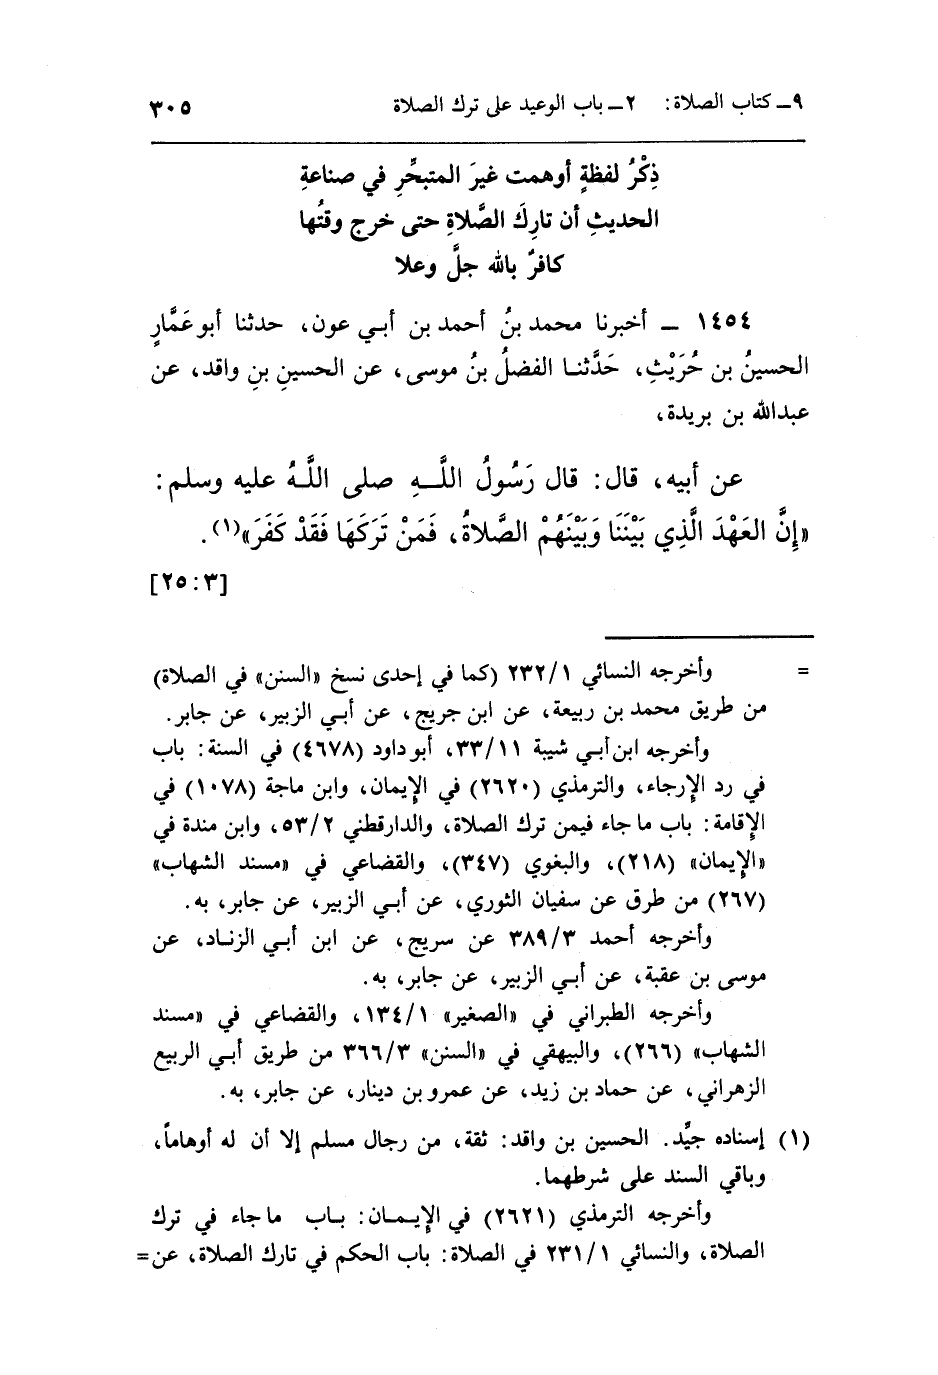 ٩ــ كتاب الصلاة: ٢ــ باب الوعيد على ترك الصلاة ٣٠٥
ذِكْرُ لفظةٍ أوهمت غيرَ المتبحِّرِ في صناعةِ
الحديثِ أن تارِكَ الصَّلاةِ حتى خرج وقتُها
كافرٌ بالله جلَّ وعلا
١٤٥٤ ــ أخبرنا محمد بنُ أحمد بن أبي عون، حدثنا أبو عَمَّارٍ
الحسينُ بن حُرَيْثٍ، حَدَّثنا الفضلُ بنُ موسى، عن الحسينِ بنِ واقد، عن
عبدالله بن بريدة،
عن أبيه، قال: قال رَسُولُ اللَّهِ صلى اللَّهُ عليه وسلم:
«إِنَّ العَهْدَ الَّذِي بَيْنَنَا وَبَيْنَهُمْ الصَّلاةُ، فَمَنْ تَرَكَهَا فَقَدْ كَفَرَ»(١).
[٢٥:٣]
= وأخرجه النسائي ٢٣٢/١ (كما في إحدى نسخ «السنن» في الصلاة)
من طريق محمد بن ربيعة، عن ابن جريج، عن أبي الزبير، عن جابر.
وأخرجه ابن أبي شيبة ٣٣/١١، أبو داود (٤٦٧٨) في السنة: باب
في رد الإرجاء، والترمذي (٢٦٢٠) في الإيمان، وابن ماجة (١٠٧٨) في
الإقامة: باب ما جاء فيمن ترك الصلاة، والدارقطني ٥٣/٢، وابن مندة في
«الإيمان» (٢١٨)، والبغوي (٣٤٧)، والقضاعي في «مسند الشهاب»
(٢٦٧) من طرق عن سفيان الثوري، عن أبي الزبير، عن جابر، به.
وأخرجه أحمد ٣٨٩/٣ عن سريج، عن ابن أبي الزناد، عن
موسى بن عقبة، عن أبي الزبير، عن جابر، به.
وأخرجه الطبراني في «الصغير» ١٣٤/١، والقضاعي في «مسند
الشهاب» (٢٦٦)، والبيهقي في «السنن» ٣٦٦/٣ من طريق أبي الربيع
الزهراني، عن حماد بن زيد، عن عمرو بن دينار، عن جابر، به.
(١) إسناده جيِّد. الحسين بن واقد: ثقة، من رجال مسلم إلا أن له أوهاماً،
وباقي السند على شرطهما.
وأخرجه الترمذي (٢٦٢١) في الإيمان: باب ما جاء في ترك
الصلاة، والنسائي ٢٣١/١ في الصلاة: باب الحكم في تارك الصلاة، عن=